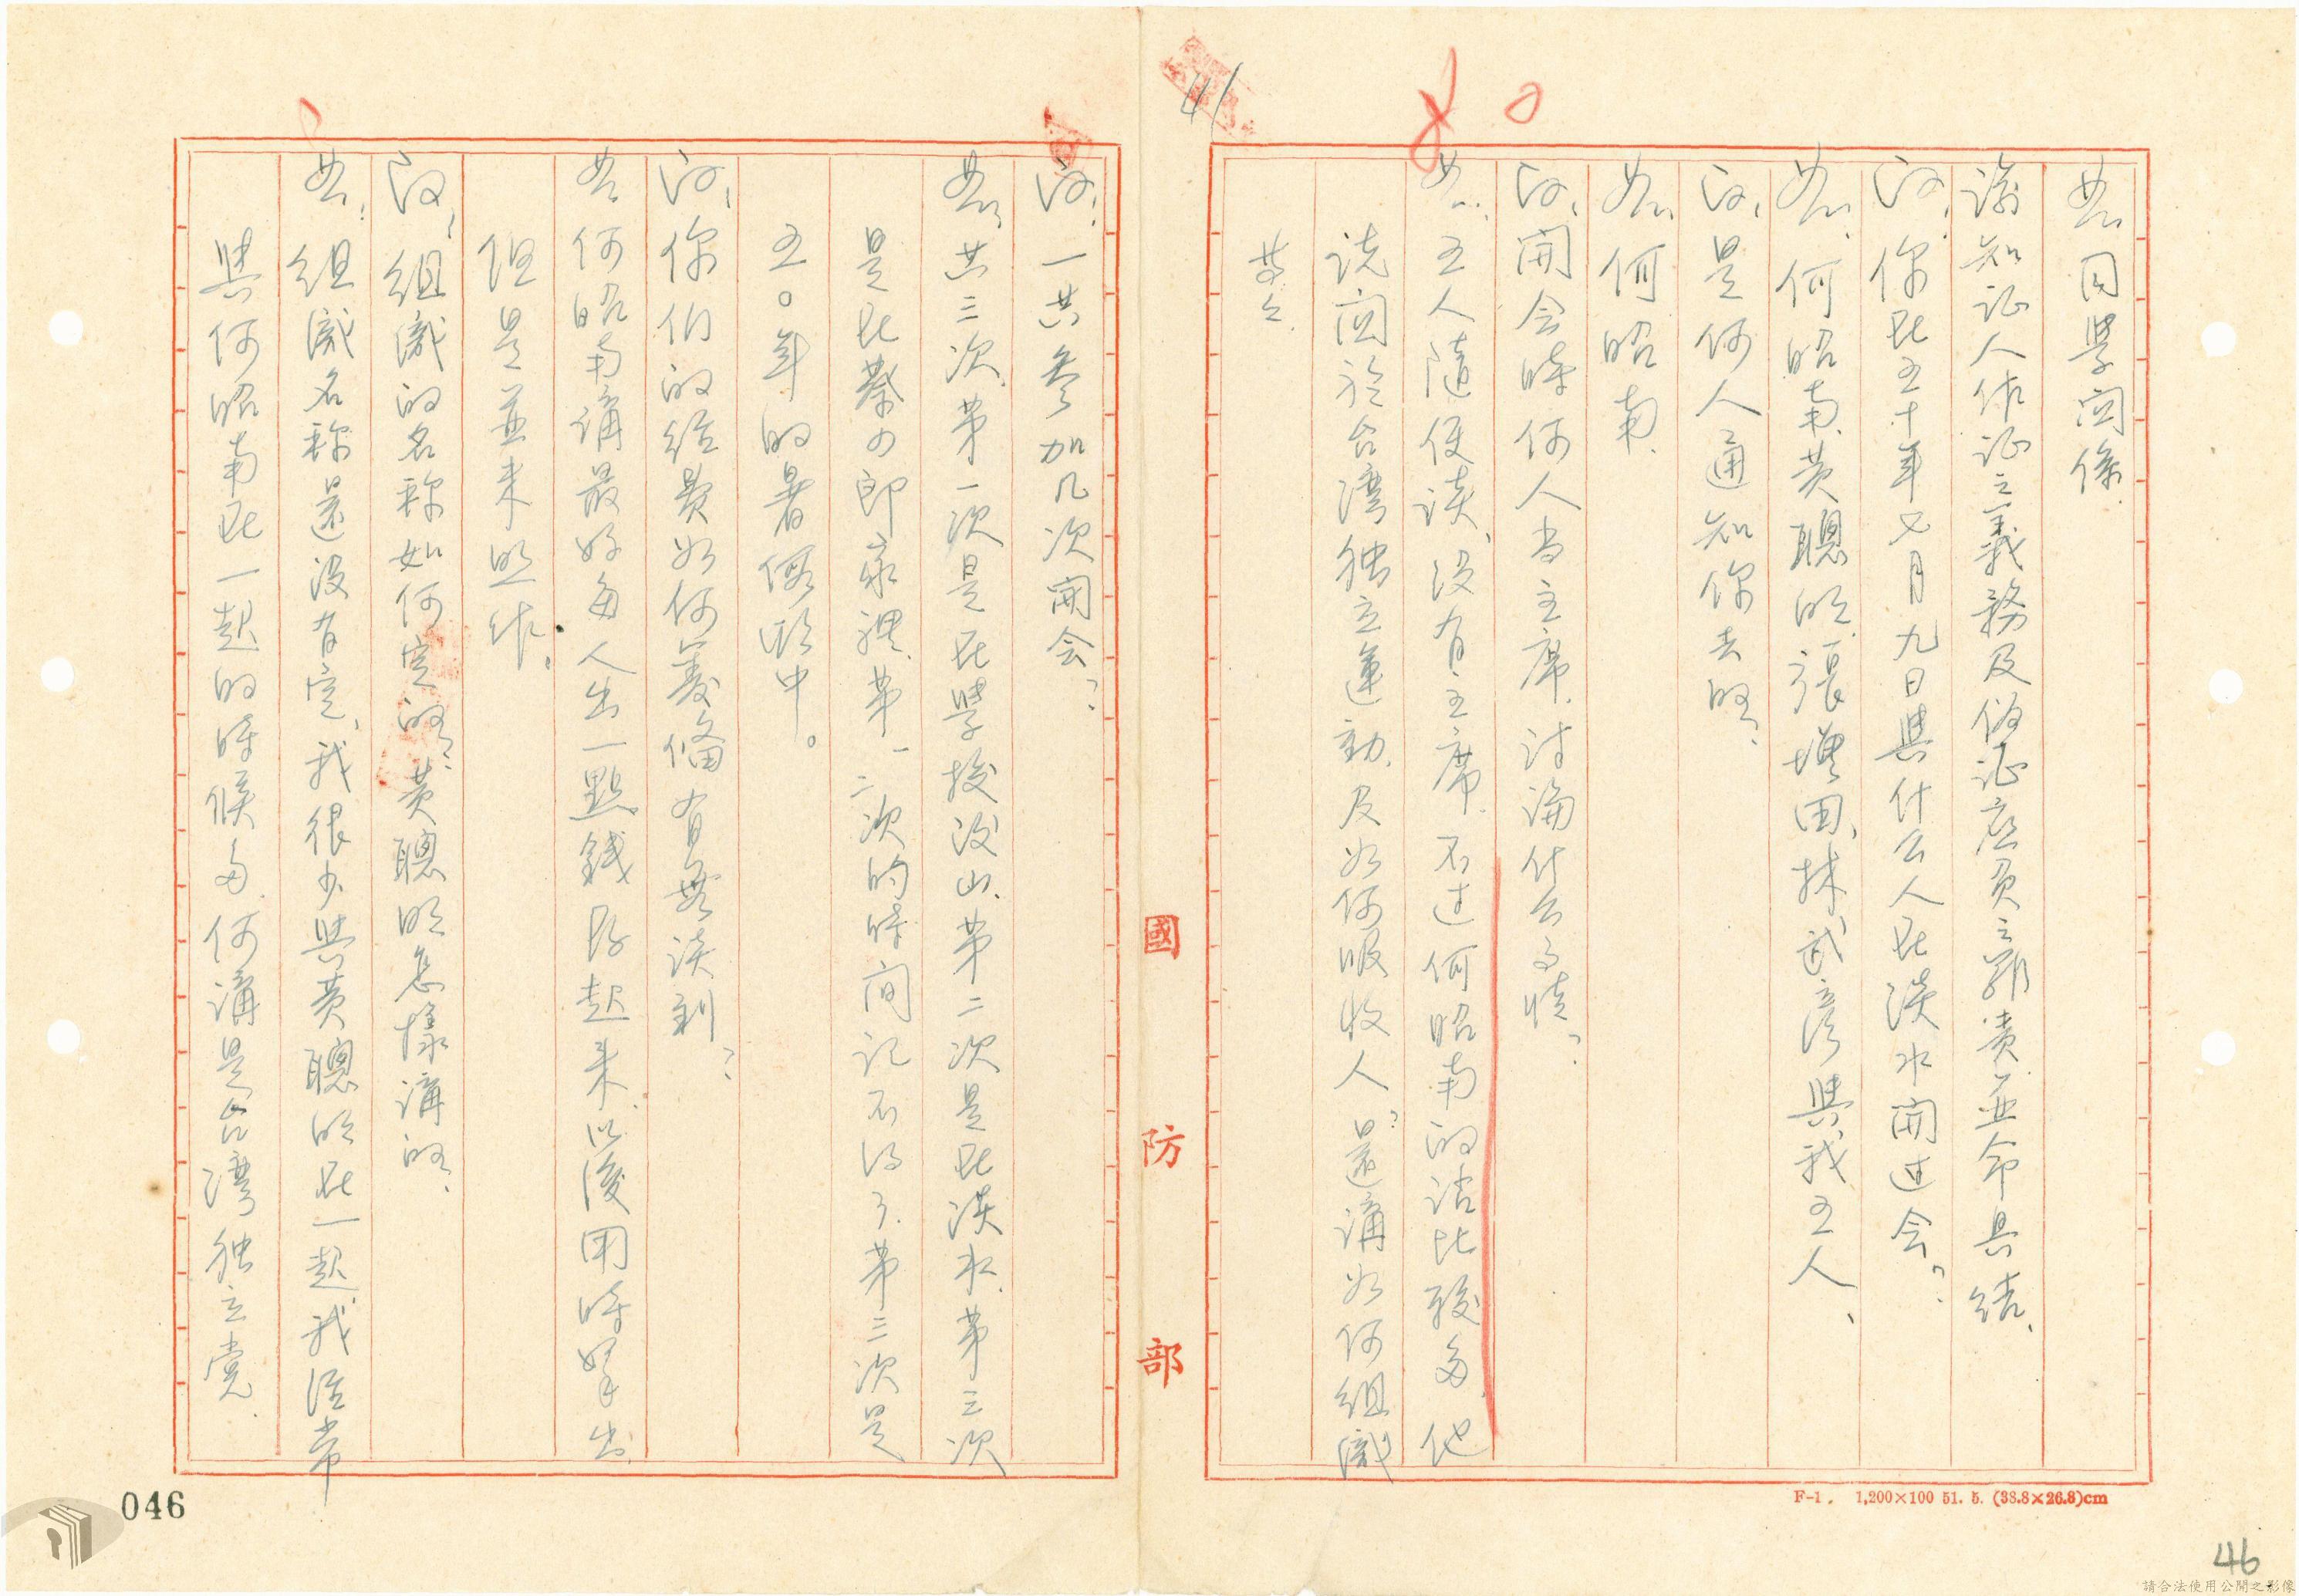 答:同學関係.
諭知証人作証之義務及偽証應負之罪責並命具結.
问:你在五十年七月九日與什么人在淡水開过会?
答:何昭南、黄聰明、張墺田、林武彦與我五人、
问:是何人通知你去的、
答:何昭南.
问:開会時何人当主席.討論什么事情?
答:五人隨便談、没有主席.不过何昭南的话比較多.他
说関於台湾独立運動.及如何吸收人?還講如何組織
等々.
问:一共參加几次開会?
答:共三次.第一次是在學校後山.第二次是在淡水.第三次
是在蔡のの郎家裡.第一二次的時间记不得了.第三次是
五〇年的暑假期中。
问:你们的经費如何籌備有無谈到?
答:何昭南講最好每人出一點錢存起来.以後用時拿出
但是並未照作。
问:組織的名称如何定的?黄聰明怎樣講的、
答:組織名称還没有定、我很少與黄聰明在一起.我経常
與何昭南在一起的時候多.何講是台湾独立党.
國防部
F-1. 1,200×100 51. 5. (38.8×26.8)cm
41
046
46
請合法使用公開之影像